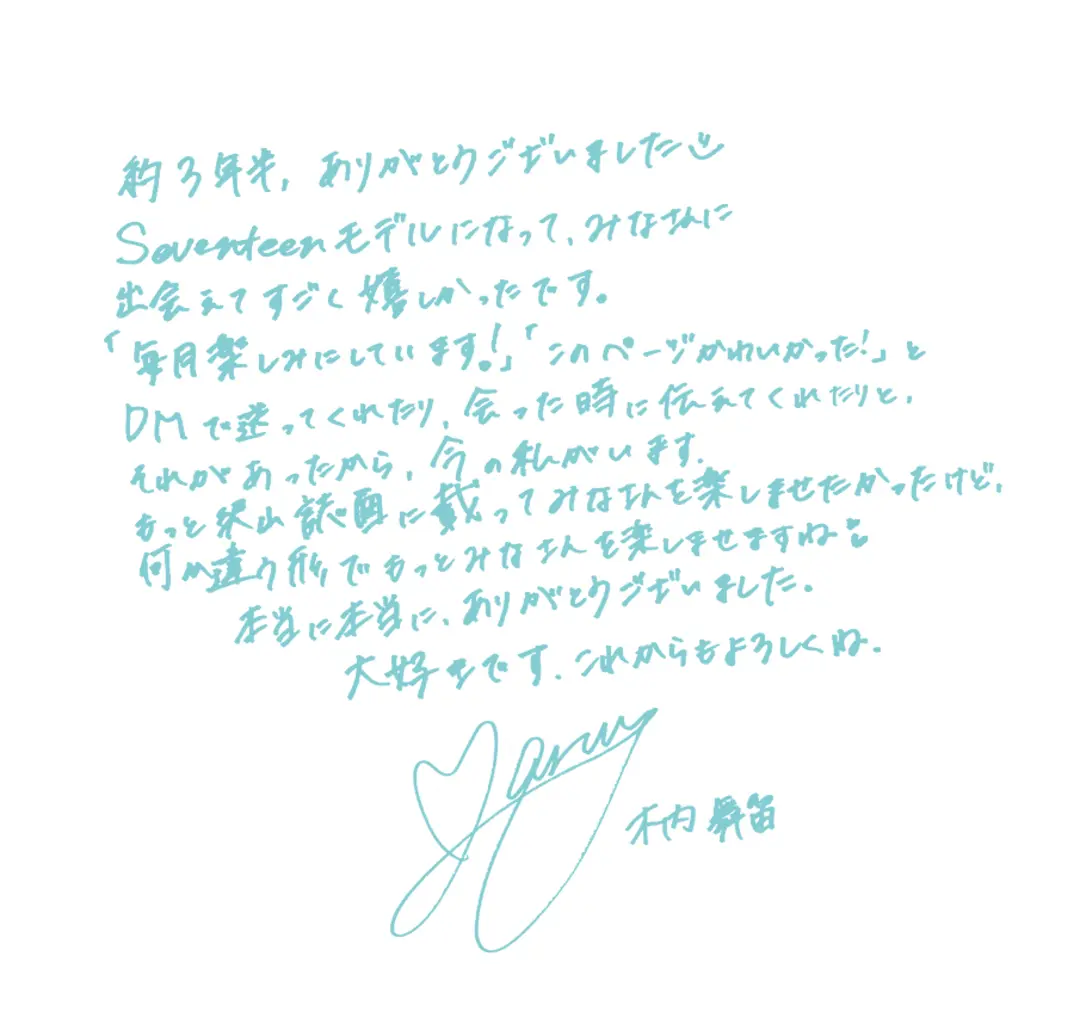 約3年半, ありがとうございました
Seventeenモデルになって、みなさんに
出会えてすごく嬉しかったです。
「毎月楽しみにしています!」「このページかわいかった!」と
DMで送ってくれたり、会った時に伝えてくれたりと、
それがあったから、今の私がいます.
もっと沢山誌面に載ってみなさんを楽しませたかったけど、
何か違う形でもっとみなさんを楽しませますね
本当に本当に、ありがとうございました.
大好きです. これからもよろしくね.
木内舞笛